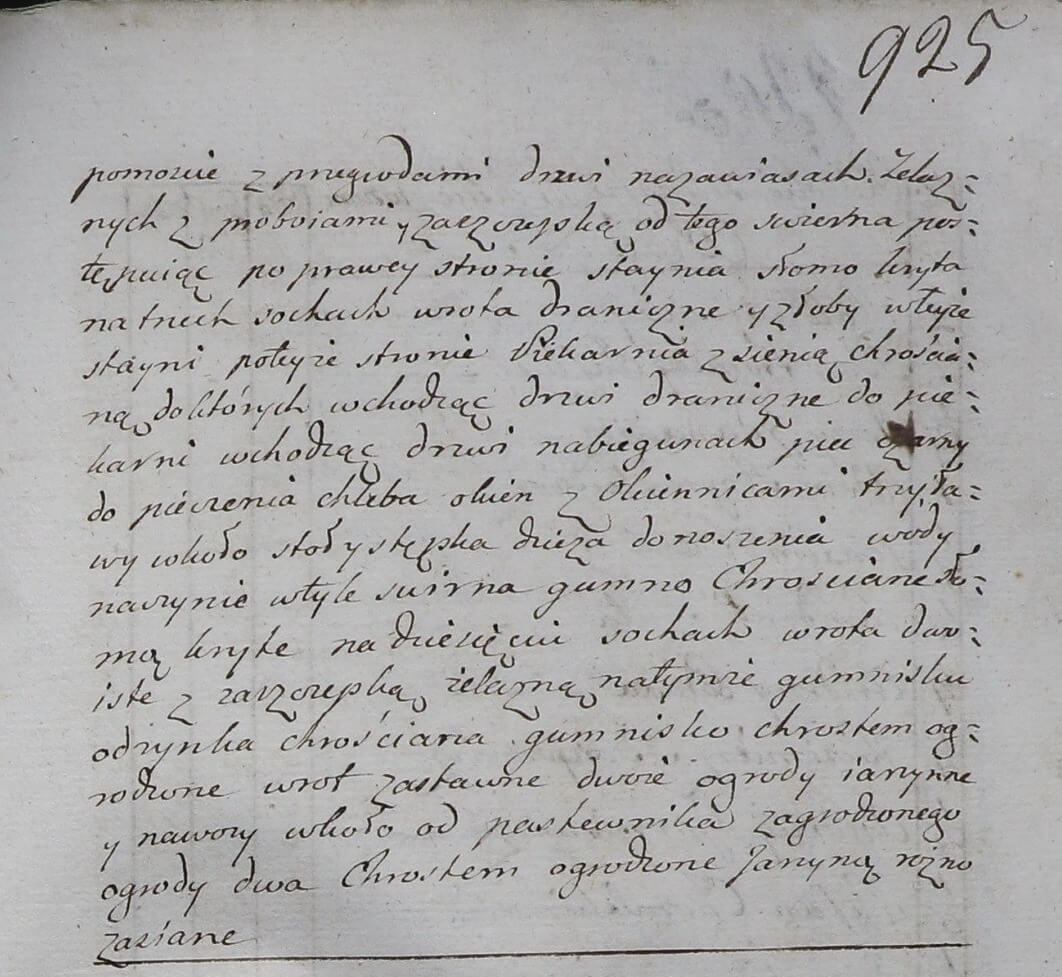 925
pomoście z przegrodami drzwi nazawiasach Żelaz=
nych z proboiami y zaczepką od tego swierna pos=
tępuiąc po prawey stronie staynia słomo kryta
na trzech sochach wrota draniczne y złoby wteyże
stayni poteyże stronie Piekarnia z sienią chrościa=
ną do których wchodząc drzwi draniczne do pie=
karni wchodząc drzwi nabiegunach piec czarny
do pieczenia chleba okien z Okiennicami trzy ła=
wy wkoło stoł y stępka dzieża do noszenia wody
naczynie wtyle swirna gumno Chrosciane sło=
mą kryte na dziesięciu sochach wrota dwo=
iste z zaszczepką żelazną natymże gumnisku
odrynka chrościana gumnisko chrostem og=
rodzone wrot zastawne dwoie ogrody iarzynne
y nawozy wkoło od pastewnika zagrodzonego
ogrody dwa Chrostem ogrodzone Jarzyną rożno
zasiane